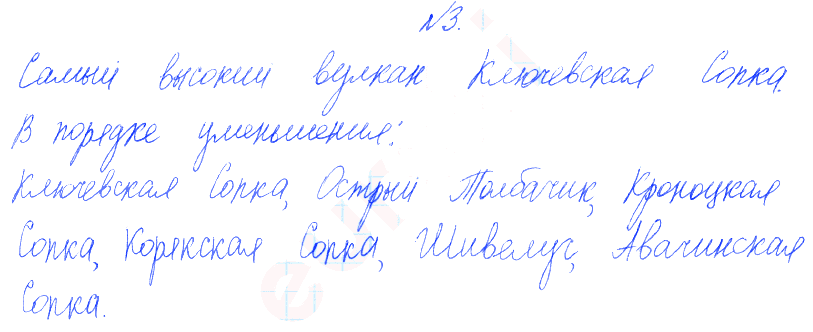 №3.
Самый высокий вулкан Ключевская Сопка.
В порядке уменьшения:
Ключевская Сопка, Острый Толбачик, Кроноцкая
Сопка, Корякская Сопка, Шивелуч, Авачинская
Сопка.